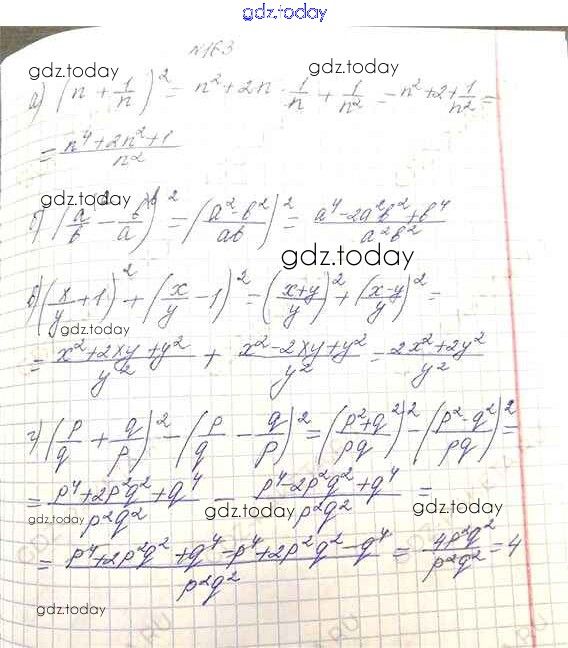 gdz.today
№163
gdz.today gdz.today
а) (n + 1/n)² = n² + 2n · 1/n + 1/n² = n² + 2 + 1/n² =
= (n⁴ + 2n² + 1)/n²
gdz.today
б) (a/b - b/a)² = ((a² - b²)/ab)² = (a⁴ - 2a²b² + b⁴)/a²b²
gdz.today
в) (x/y + 1)² + (x/y - 1)² = ((x+y)/y)² + ((x-y)/y)² =
gdz.today
= (x² + 2xy + y²)/y² + (x² - 2xy + y²)/y² = (2x² + 2y²)/y²
г) (p/q + q/p)² - (p/q - q/p)² = ((p² + q²)/pq)² - ((p² - q²)/pq)² =
= (p⁴ + 2p²q² + q⁴)/p²q² - (p⁴ - 2p²q² + q⁴)/p²q² =
gdz.today gdz.today gdz.today
= (p⁴ + 2p²q² + q⁴ - p⁴ + 2p²q² - q⁴)/p²q² = 4p²q²/p²q² = 4
gdz.today